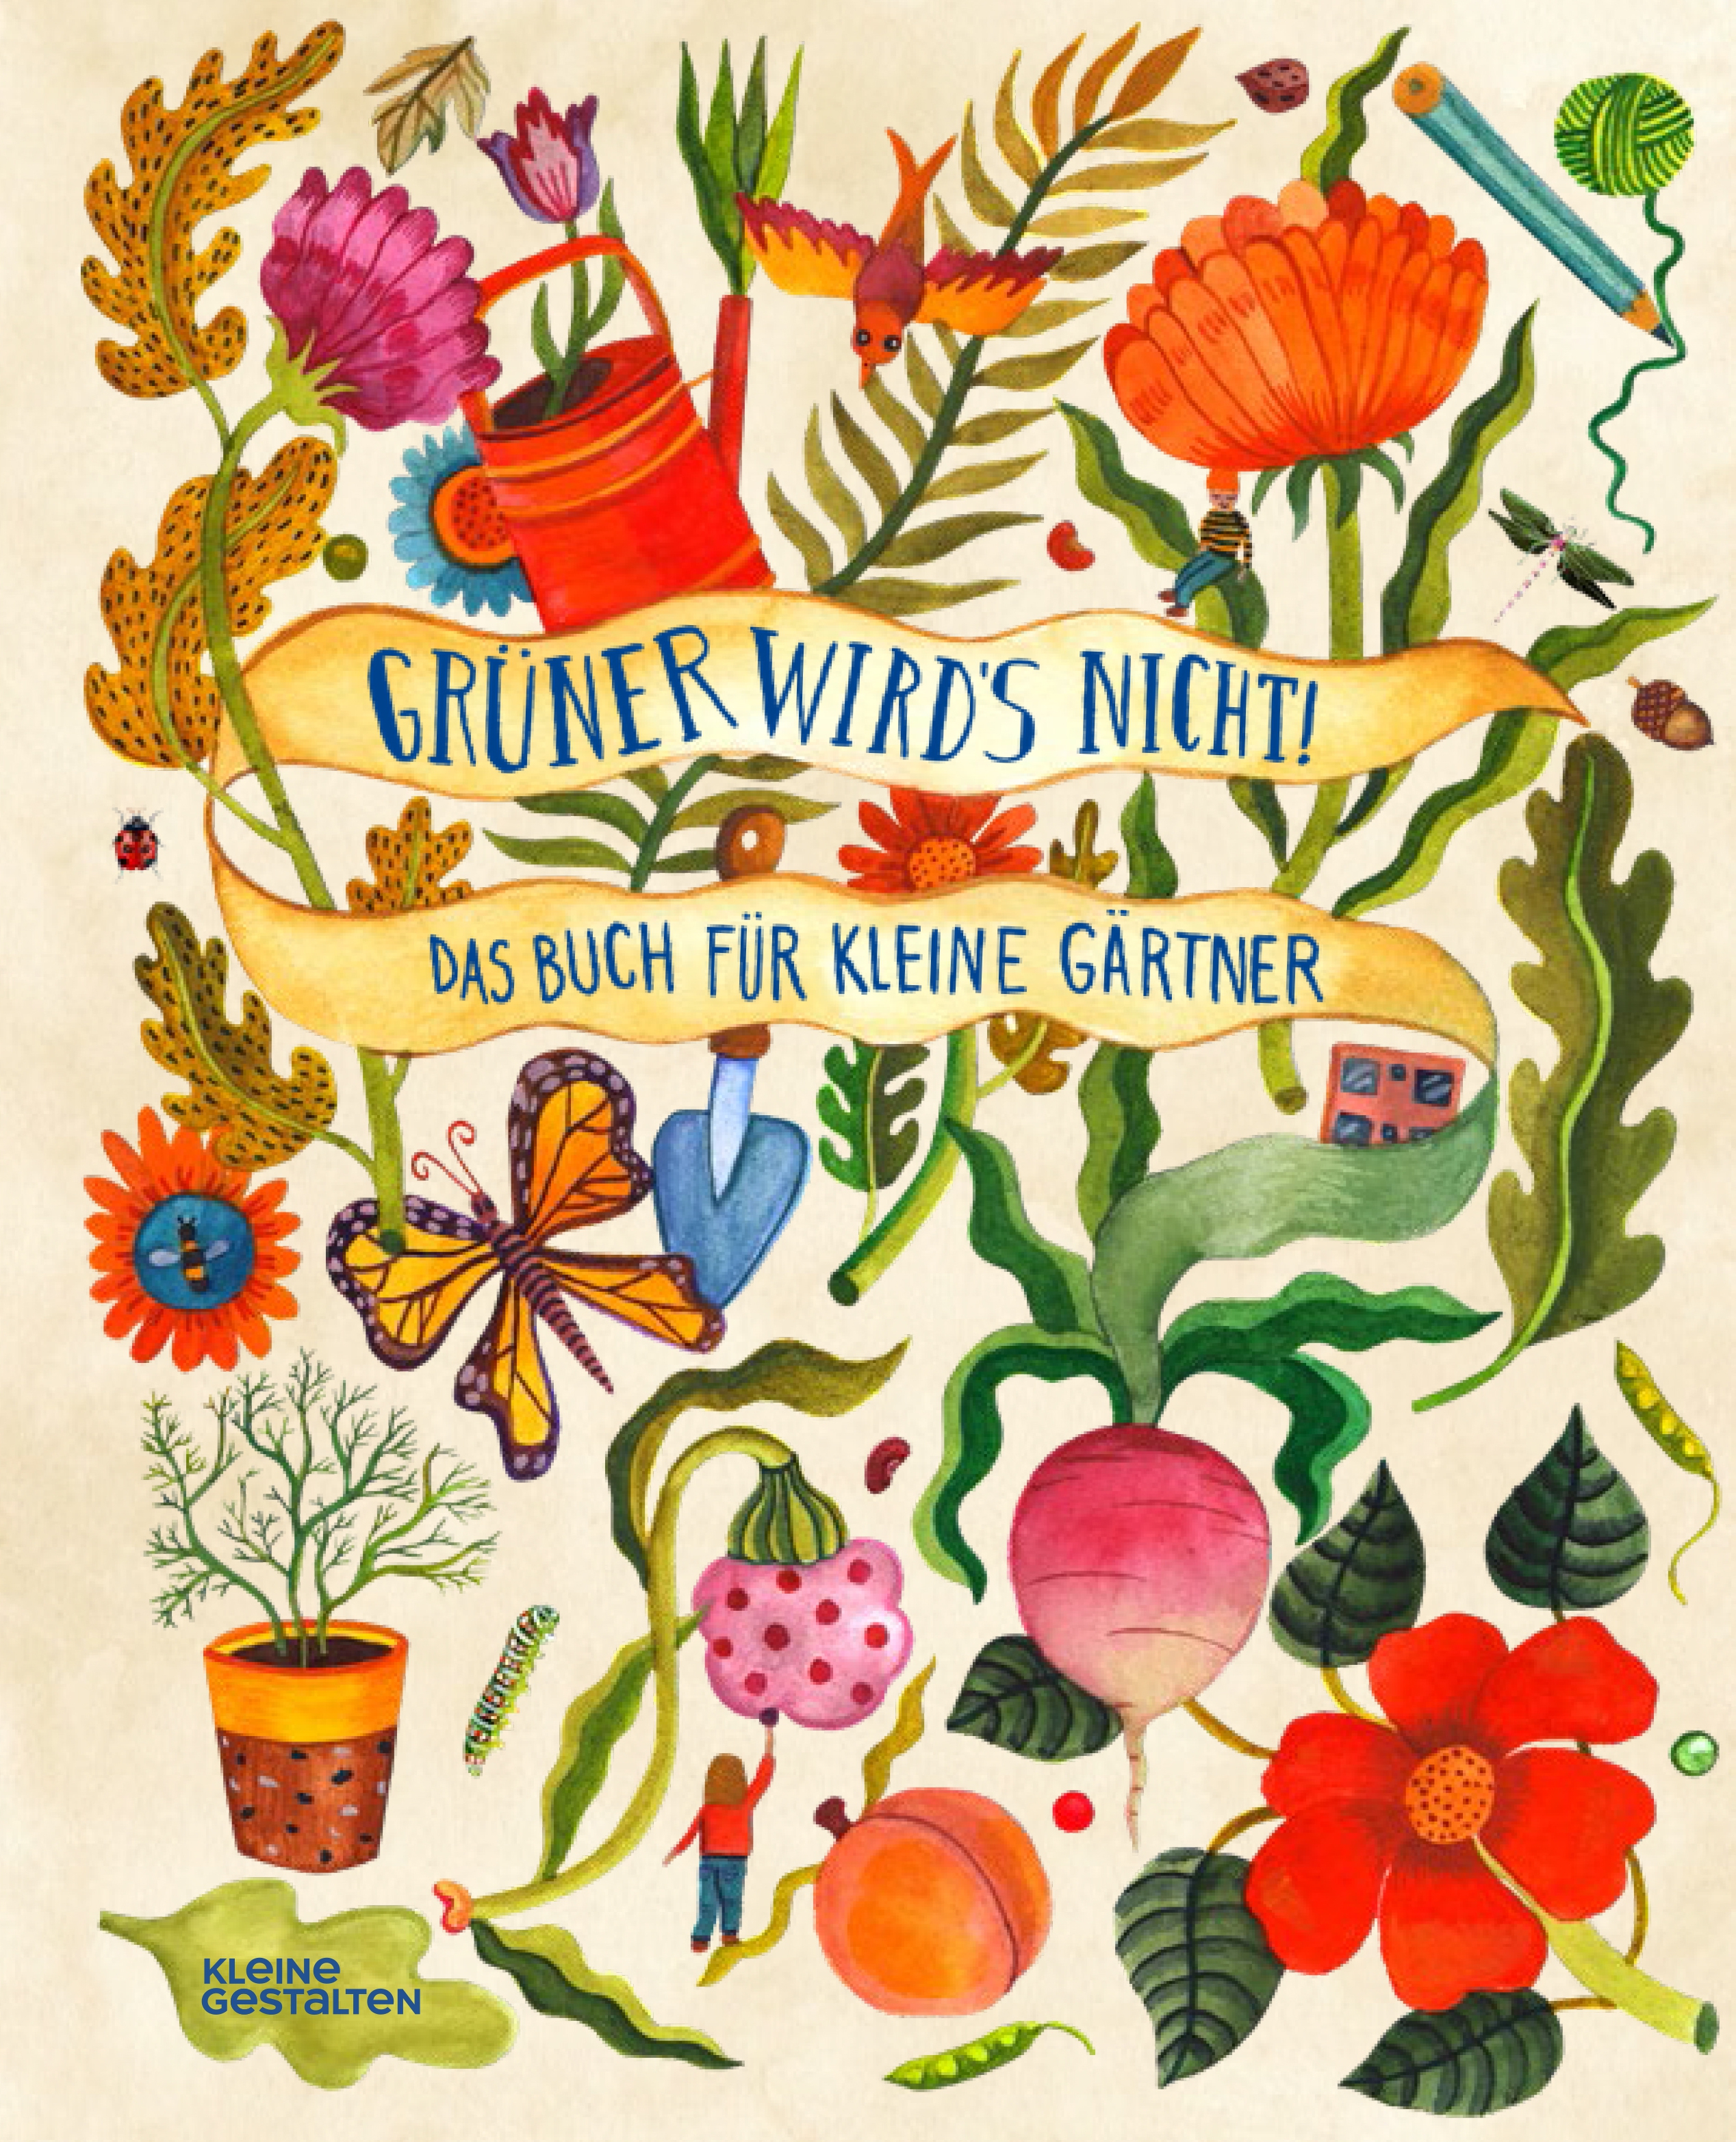 GRÜNER WIRD'S NICHT!
DAS BUCH FÜR KLEINE GÄRTNER
KLEINE
GESTALTEN